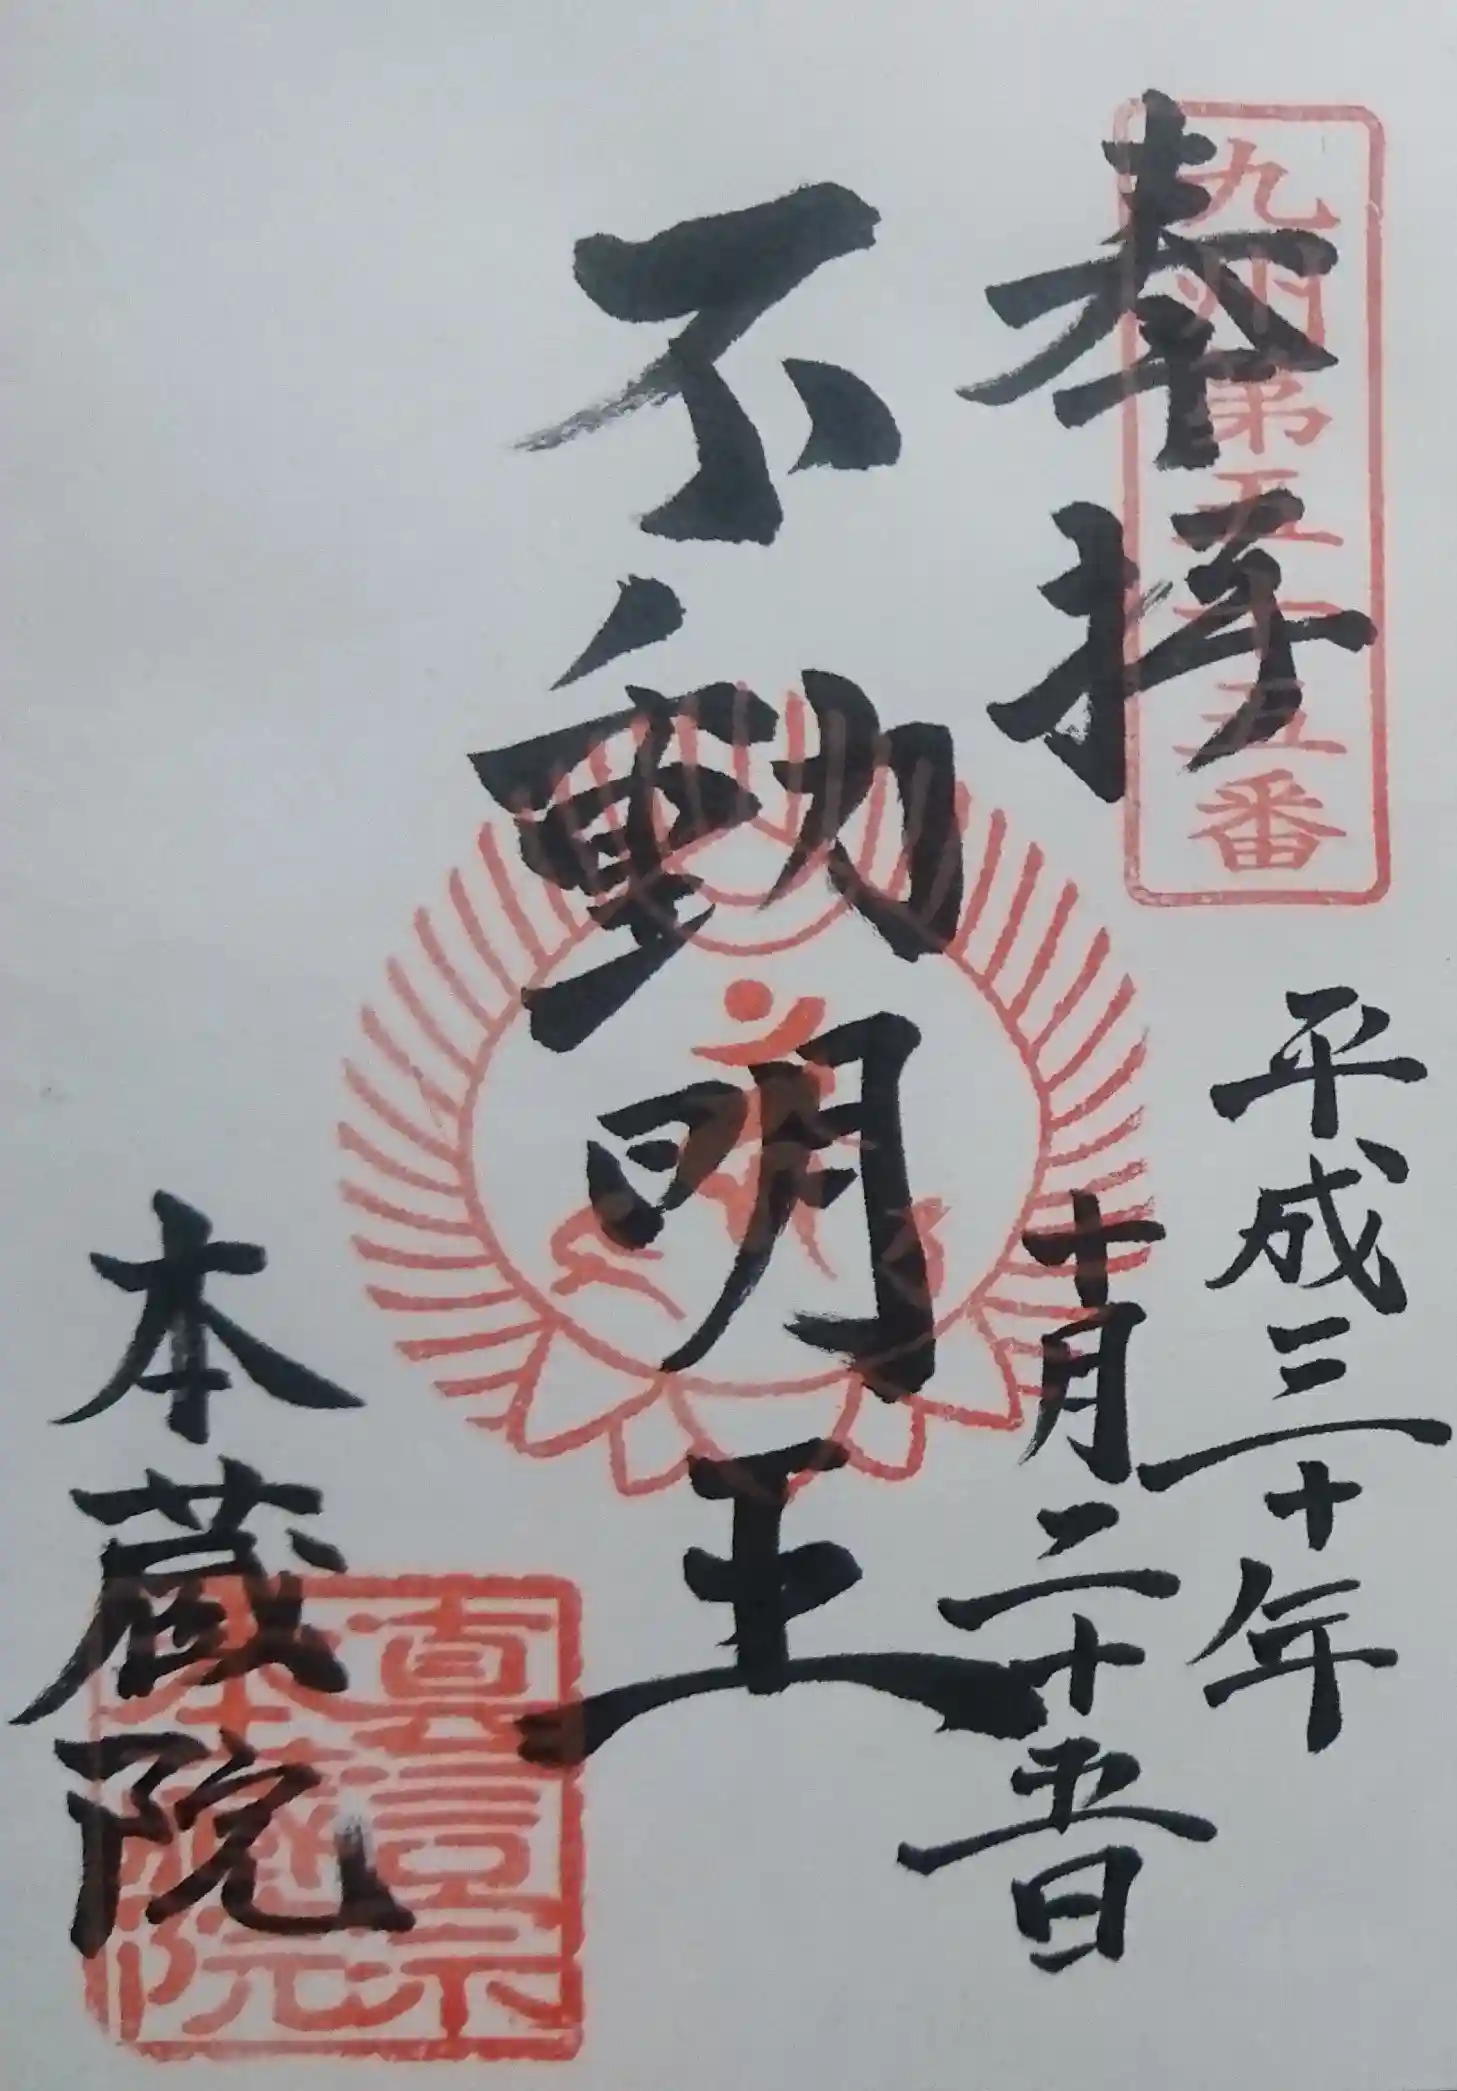 奉拝
九州第五十五番
平成三十年
十月二十五日
不動明王
本蔵院
真言宗
本蔵院